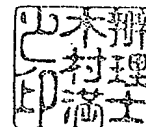 辨理士
木村満
之印